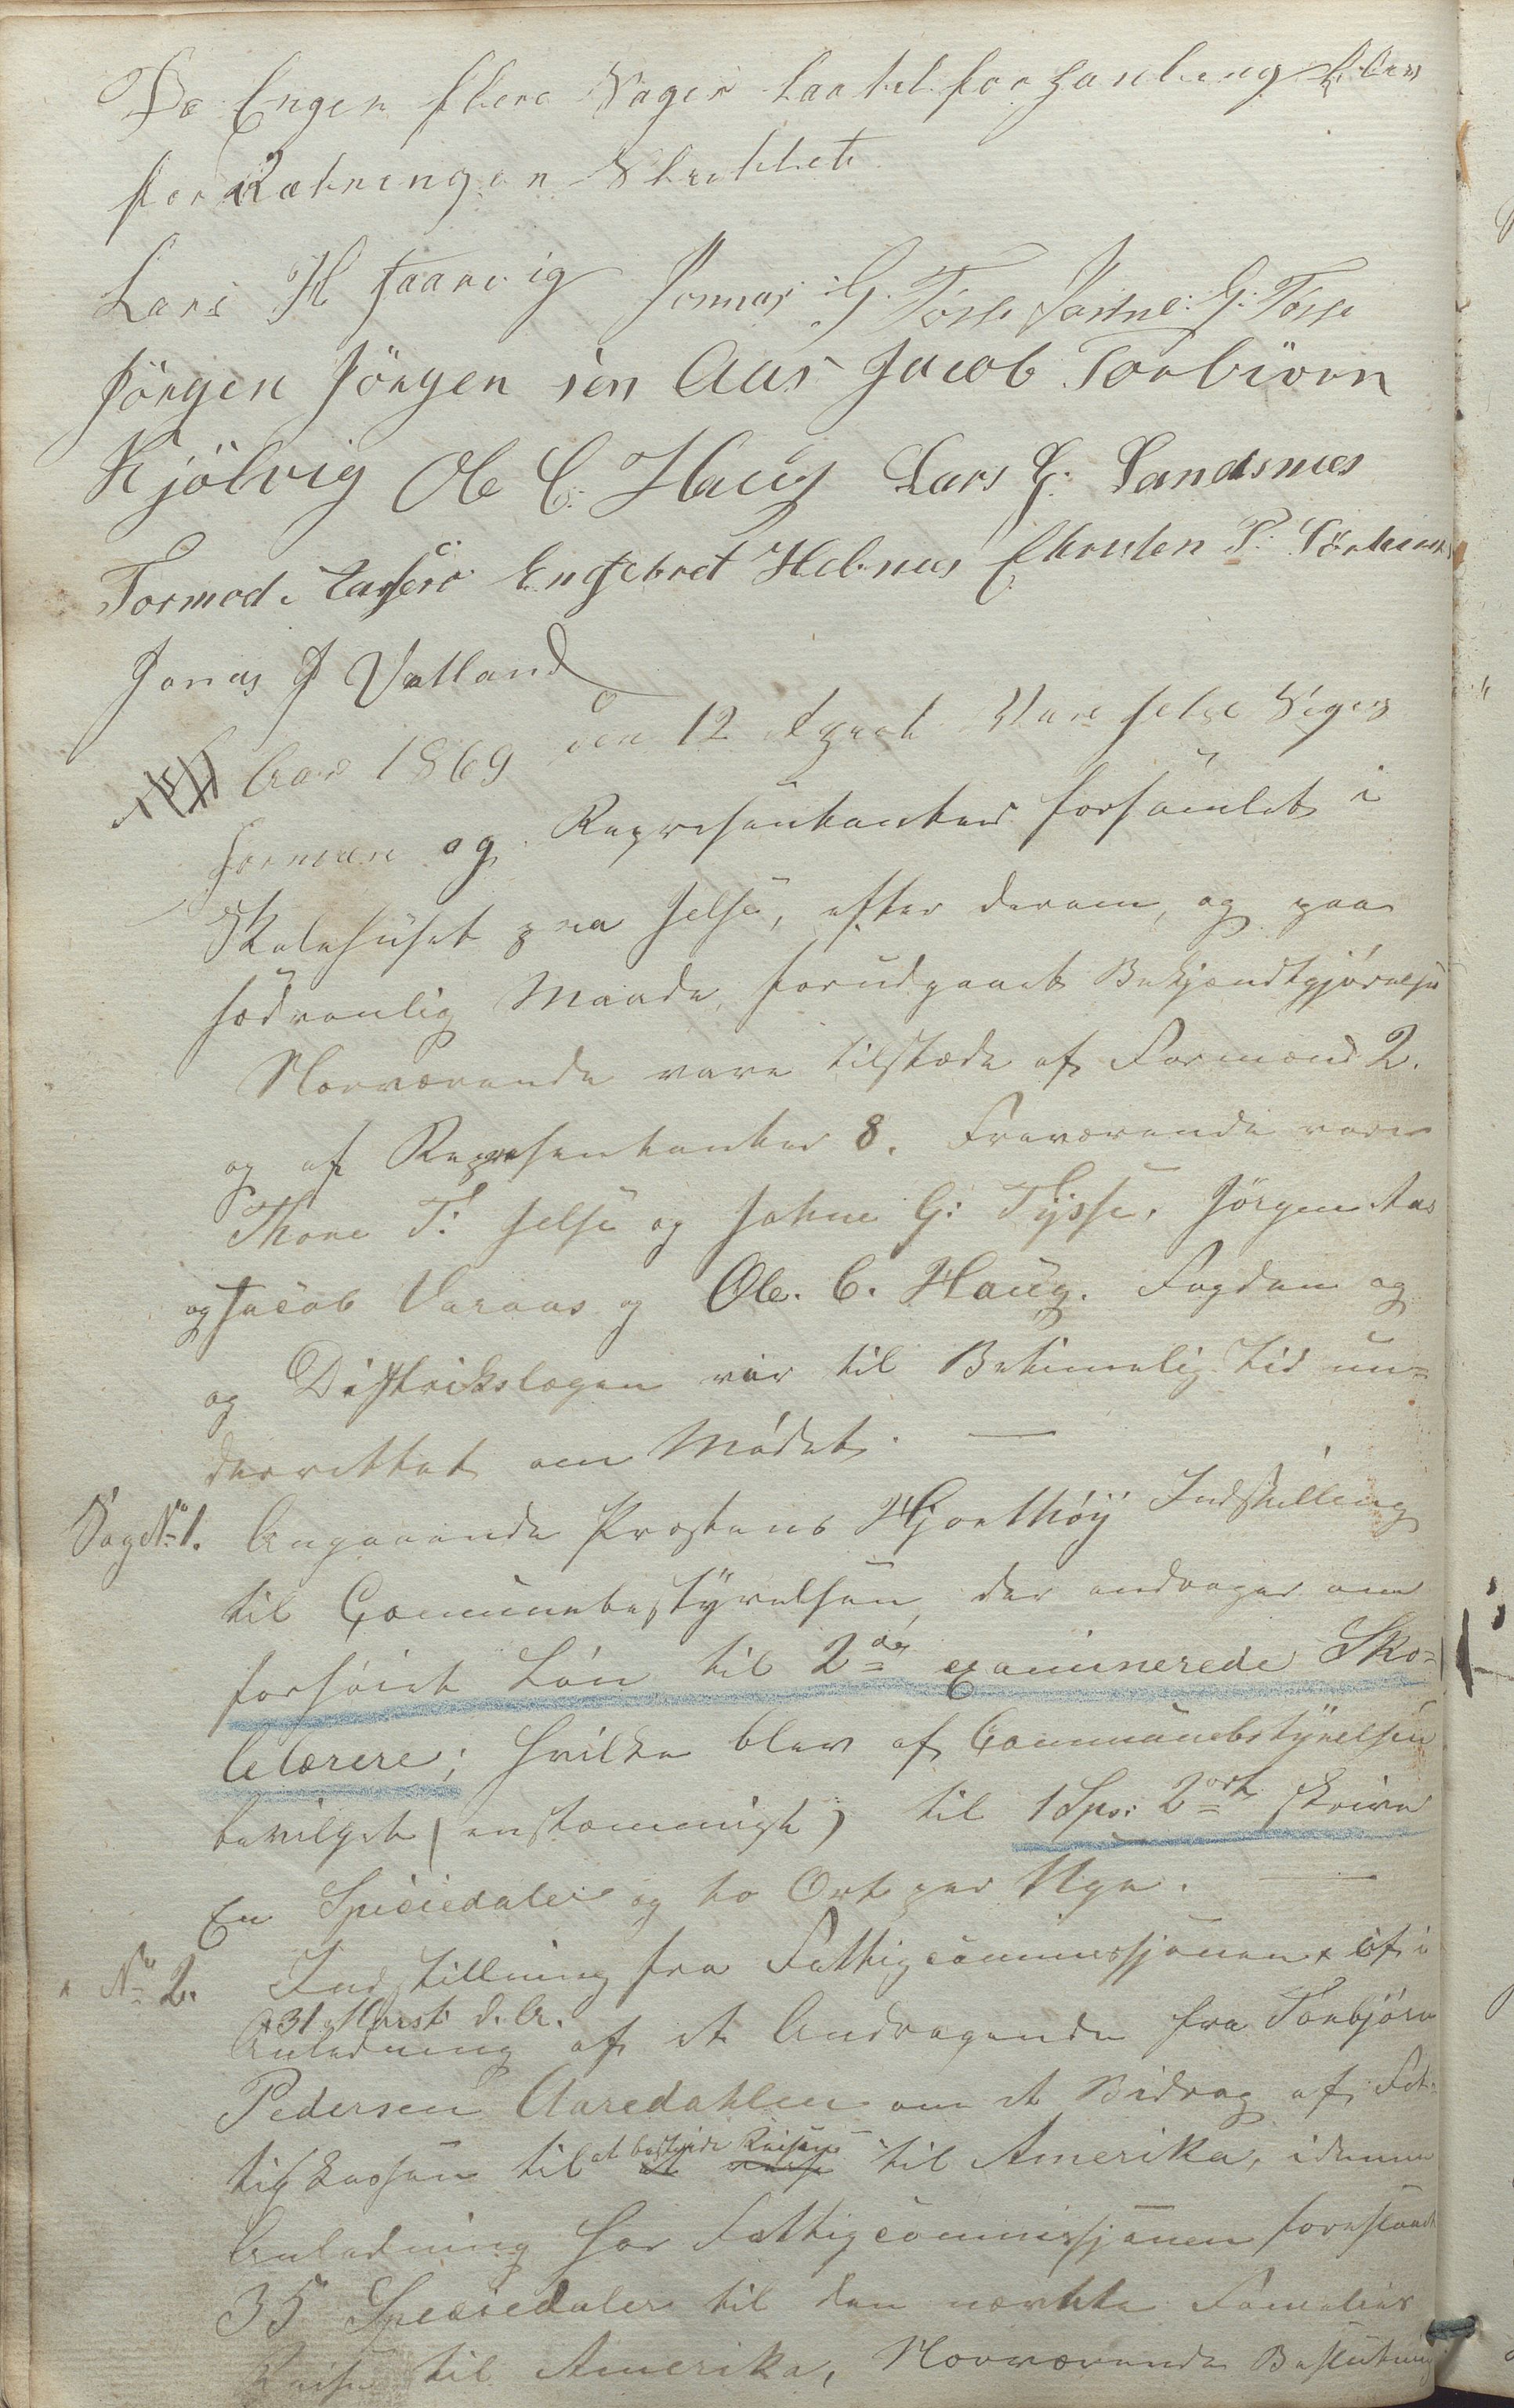 Da Engen flere Sager haatel forhanling blev
forRætningen Sluttet
Lars H Haarvig Jonnas G. Tøsse Jastne: G: Tøsse
Jörgen Jörgensen Aas Jacob Torbiörn
Kjölvig Ole C. Haug Lars G. Sandsnæs
Tormod. Engebret Hebnes Christen P.
Jonas J Vatland
Aar 1869 den 12 April Var Jelse Sogns
Formæn og Repræsentanter forsamlet i
Skolehuset paa Jelse, efter derom, og paa
sædvanlig Maade, forudgaaet Bekjendtgjørelse
Nærværende vare tilstede af Formænd 2.
og af Representanter 8. Fraværende vare
Thore T: Jelse og Johne G: Tysse, Jörgen Aas
og Jacob Varaas og Ole. C. Haug. Fogden og
og Distrikslægen var til Betimelig tid un-
derrettet om Mødet. —
Sag No 1. Angaaende Prostens Hjorthöÿ Indstilling
til Communebestÿrelsen, der andrager om
forhöiet Lön til 2de examinerede Sko-
lelærere; hvilke blev af Communebestÿrelsen
bevilget (enstemmigt) til 1 Spd: 2 ort skrive
En Speciedaler og to Ort per Uge. —
No 2. Indstilling fra Fattigcommissjonen × af i
× 31 Marst d. A.
Anledning af et Andragende fra Torbjörn
Pedersen Aaredahlen om et Bidrag af Fat-
tigkassen til at bestride Reisen til Amerika, i denne
Anledning har Fattigcommissjonen foreslaaet
35 Speciedaler til den nævnte Famelies
Reise til Amerika, Nærværende Beslutning